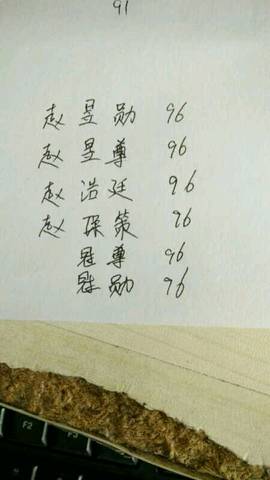 91
赵昱勋 96
赵昱尊 96
赵浩廷 96
赵琛策 96
冠尊 96
冠勋 96